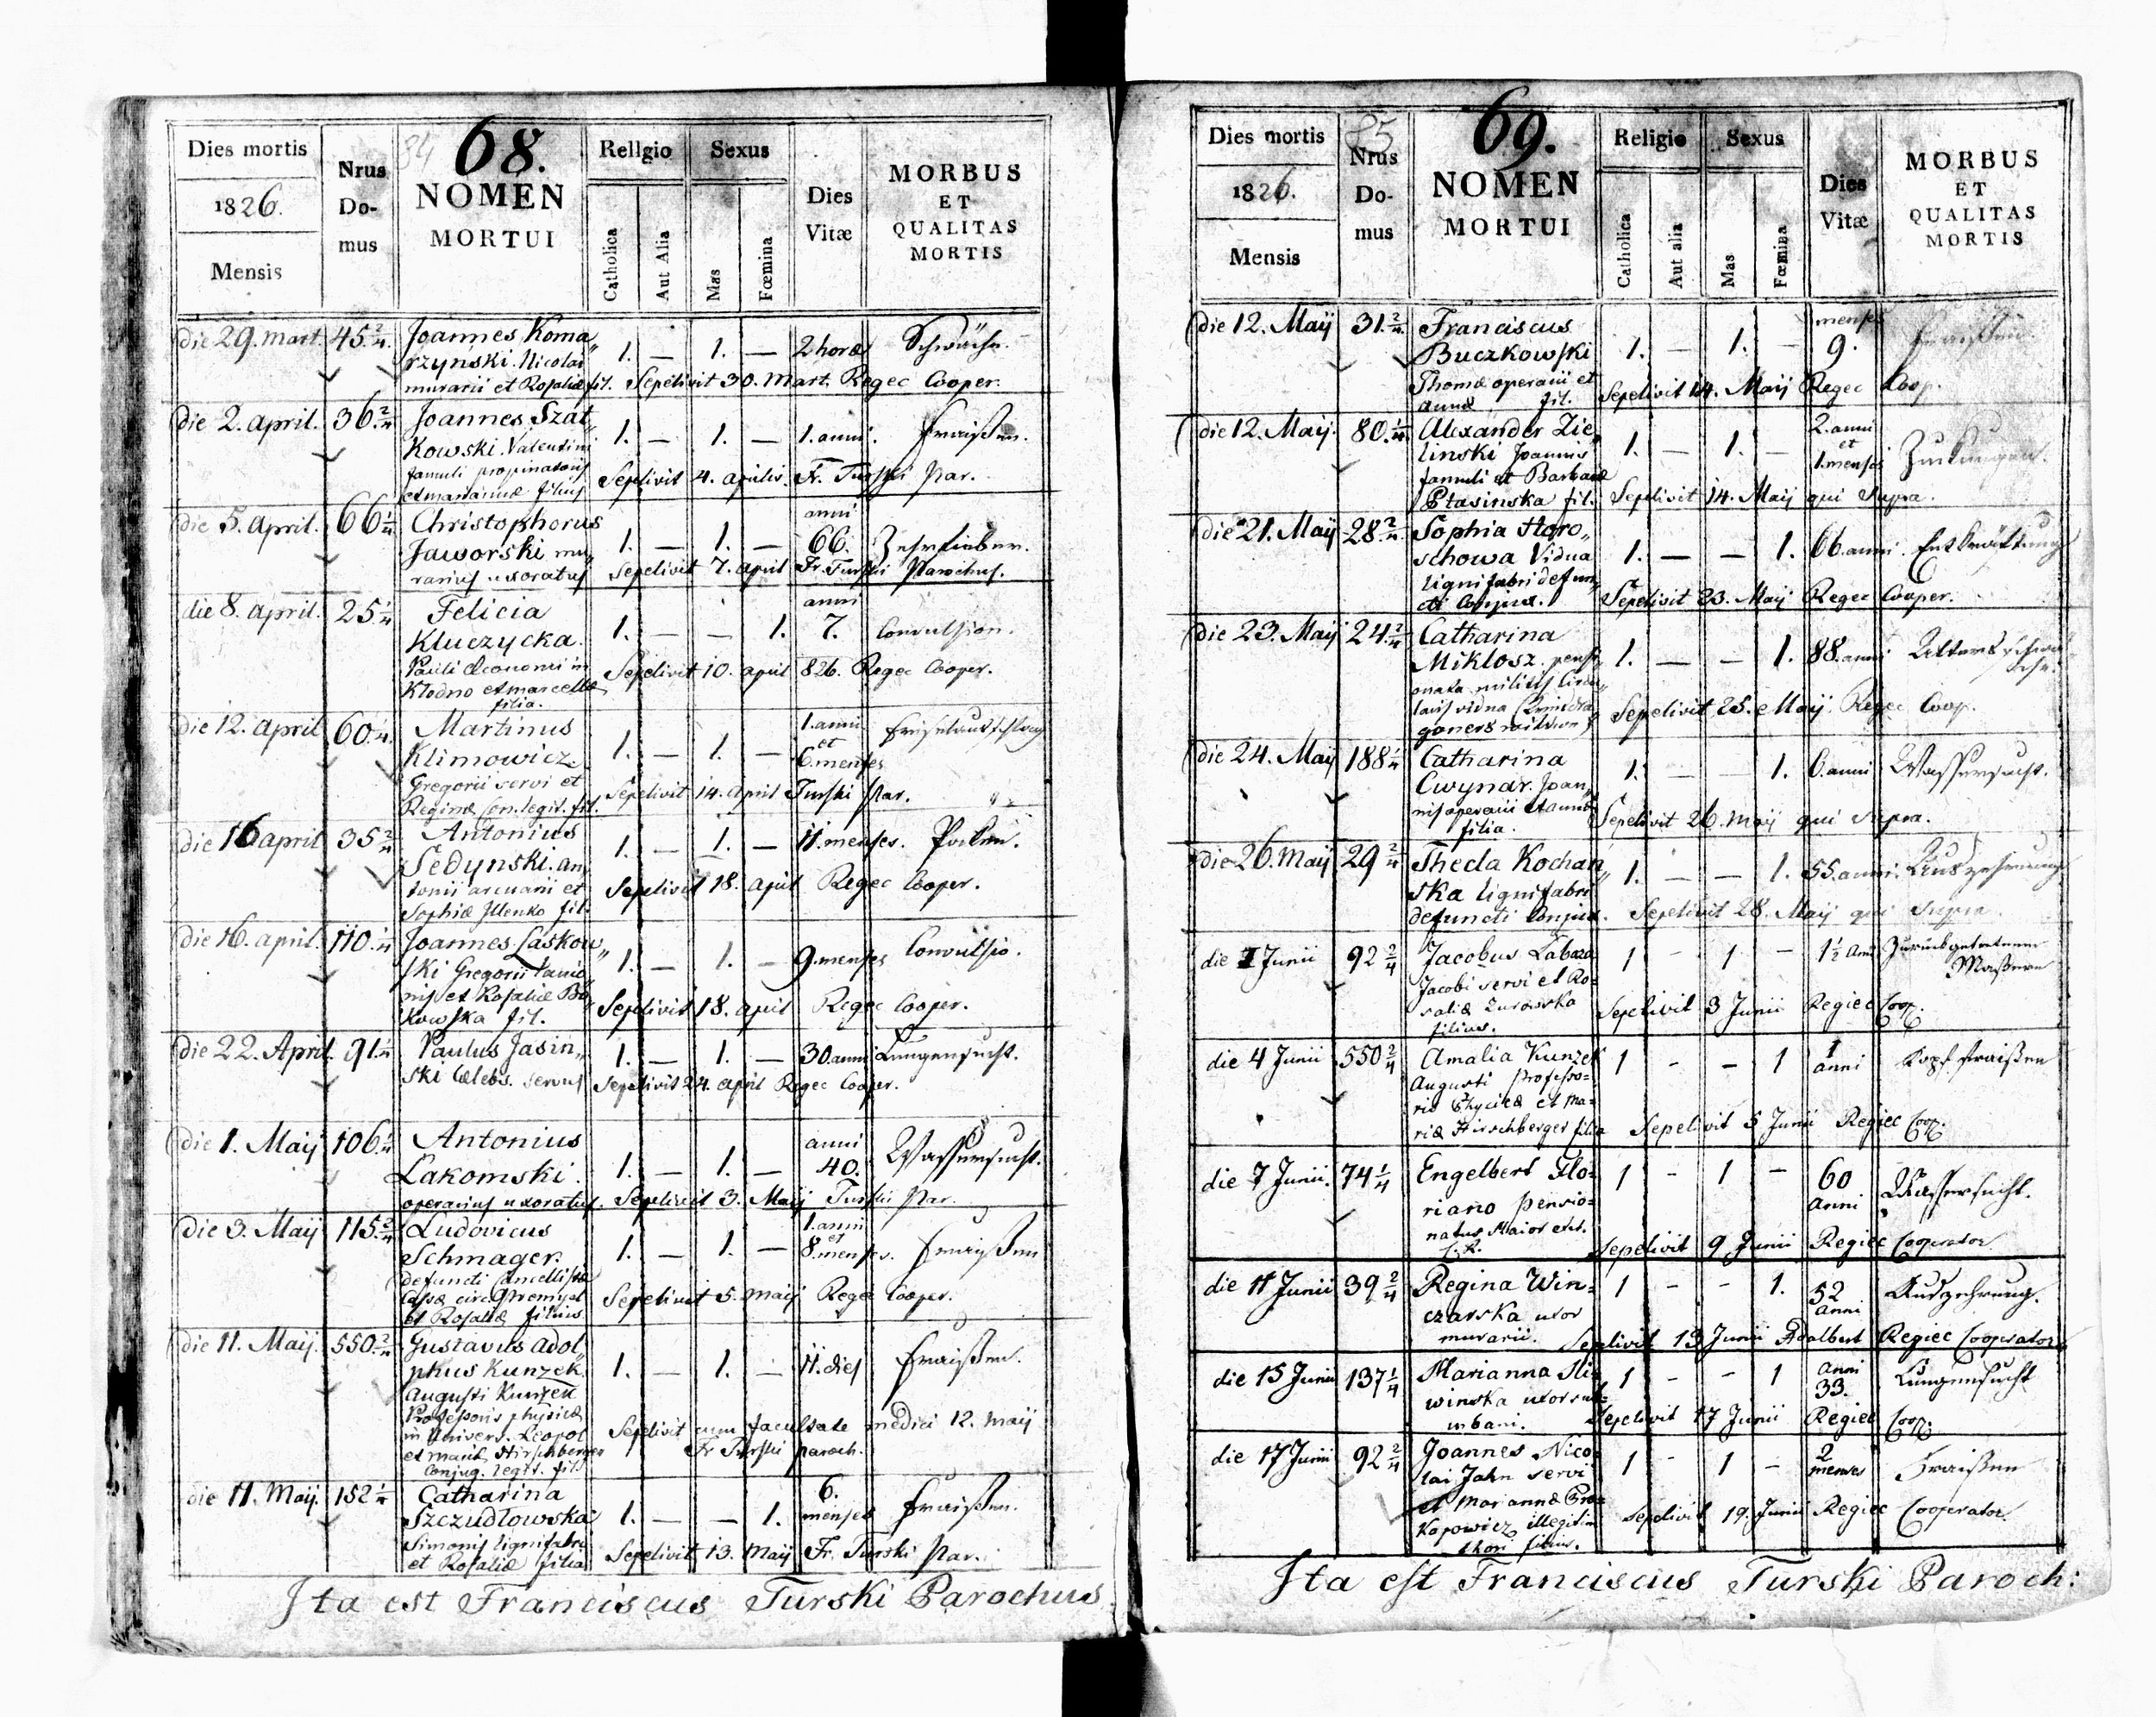 84
68.
Dies mortis
1826.
Mensis
Nrus
Do-
mus
NOMEN
MORTUI
Religio
Catholica
Aut Alia
Sexus
Mas
Fœmina
Dies
Vitæ
MORBUS
ET
QUALITAS
MORTIS
die 29. Mart. 45. 2/4. Joannes Koma„ 1. — 1. — 2 horæ Schwäche.
rzynski. Nicolai
murarii et Rosaliæ fil. Sepelivit 30. Mart. Regec Cooper.
die 2. April. 36. 2/4 Joannes Szat„ 1. — 1. — 1. anni. Fraißen.
Kowski. Valentini
famuli propinatoris Sepelivit 4. aprilis. Fr. Turski Par.
et Mariannæ filius
die 5. April. 66 1/4 Christophorus 1. — 1. — anni 66. Zehrfieber.
Jaworski mu„
rarius uxoratus Sepelivit 7. April Fr. Turski Parochus.
die 8. April. 25 1/4 Felicia 1. — — 1. anni 7. Convulsion.
Kluczycka.
Pauli Œconomi in Sepelivit 10. april 826. Regec Cooper.
Kłodno et Marcellæ
filia.
die 12. April 60. 1/4. Martinus 1. — 1. — 1. anni et 6. menses Frieselausschlag
Klimowicz.
Gregorii servi et Sepelivit 14. April Turski Par.
Reginæ Con. legit. fil.
die 16 april 35 2/4 Antonius 1. — 1. — 11. menses. Pocken.
Sedynski. An„
tonii arcuarii et Sepelivit 18. april Regec Cooper.
Sophiæ Illenko fil.
die 16. april. 110. 1/4 Joannes Laskow„ 1. — 1. — 9. menses Convulsio.
ski Gregorii
et Rosaliæ Bo„ Sepelivit 18. april Regec Cooper.
kowska fil.
die 22. April. 91. 1/4 Paulus Jasin„ 1. — 1. — 30. anni Lungensucht.
ski Cœlebs. servus Sepelivit 24. april Regec Cooper.
die 1. Maij 106. 1/4 Antonius 1. — 1. — anni 40. Wassersucht.
Lakomski.
operarius uxoratus. Sepelivit 3. Maij Turski Par.
die 3. Maij 115. 2/4 Ludovicus 1. — 1. — 1. anni et 8. menses. Fraißen
Schmager.
defuncti Cancellistæ
Cassæ circ. Przemysl Sepelivit 5. Maij Regec Cooper.
et Rosaliæ filius
die 11. Maij. 550. 2/4 Gustavus Adol„ 1. — 1. — 11. dies Fraißen.
phus Kunzek
Augusti Kunzek
Professoris physicæ Sepelivit cum facultate medici 12. Maij
in Univers. Leopol Fr Turski paroch.
et Mariæ Hirschberger
Conjug. legit. fil.
die 11. Maij. 152 1/4 Catharina 1. — — 1. 6. menses Fraißen.
Szczudłowska
Simonis lignifabri Sepelivit 13. Maij Fr. Turski Par.
et Rosaliæ filia
Ita est Franciscus Turski Parochus.
85
69.
Dies mortis
1826.
Mensis
Nrus
Do-
mus
NOMEN
MORTUI
Religio
Catholica
Aut alia
Sexus
Mas
Fœmina
Dies
Vitæ
MORBUS
ET
QUALITAS
MORTIS
die 12. Maij 31. 2/4. Franciscus 1. — 1. — menses 9. Fraißen.
Buczkowski
Thomæ operarii et Sepelivit 14. Maij Regec Coop.
Annæ fil.
die 12. Maij. 80. 1/4 Alexander Zie„ 1. — 1. — 2. anni et 1. menses Zuckungen.
linski Joannis
famuli et Barbaræ
Ptasinska fil. Sepelivit 14. Maij qui supra.
die 21. Maij 28. 2/4 Sophia Horo„ 1. — — 1. 66. anni. Entkräftung
schowa Vidua
lignifabri defun„
cti Conjux. Sepelivit 23. Maij Regec Cooper.
die 23. Maij 24. 2/4 Catharina 1. — — 1. 88. anni Altersschwä„
Miklosz. pensi„ che.
onata militis
vidua Sepelivit 25. Maij. Regec Coop.
die 24. Maij 188 1/4 Catharina 1. — — 1. 6. anni Wassersucht.
Cwynar. Joan„
nis operarii et Annæ Sepelivit 26. Maij qui supra.
filia.
die 26. Maij 29 2/4 Thecla Kochan„ 1. — — 1. 55. anni. Auszehrung
ska lignifabri
defuncti Conjux. Sepelivit 28. Maij qui supra.
die 1 Junii 92 2/4 Jacobus Labaza 1 - 1 - 1 1/2 Ani Zurückgetretene
Jacobi servi et Ro= Masern
saliæ Zurawska Sepelivit 3 Junii Regiec Coop.
filius.
die 4 Junii 550 2/4 Amalia Kunzek 1 - - 1 1 anni Kopf fraißen
Augusti Professo=
ris Physicæ et Ma=
riæ Hirschberger filia Sepelivit 5 Junii Regiec Coop.
die 7 Junii. 74 1/4 Engelbert Flo= 1 - 1 - 60 Anni Wassersucht.
riano pensio=
natus Maior
C. R. Sepelivit 9 Junii Regiec Cooperator
die 11 Junii 39 2/4 Regina Win= 1 - - 1. 52 anni Auszehrung.
czarska uxor
murarii. Sepelivit 13 Junii Adalbert Regiec Cooperator
die 15 Junii 137 1/4 Marianna Sli= 1 - - 1 anni 33. Lungensucht
winska uxor sub=
urbani. Sepelivit 17 Junii Regiec Coop.
die 17 Junii 92 2/4 Joannes Nico= 1 - 1 - 2 menses Fraißen
lai Jahn servi
et Mariannæ Pro=
kopowicz illegitim Sepelivit 19. Junii Regiec Cooperator.
thori filius.
Ita est Franciscus Turski Paroch: